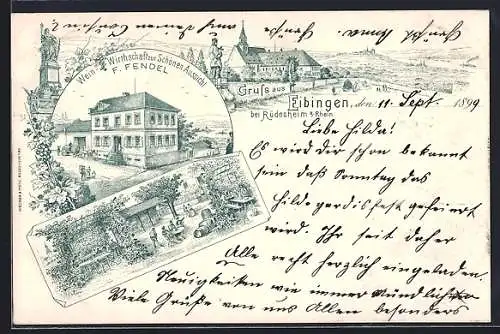 Wein Wirthschaft zur Schönen Aussicht
F. FENDEL
Gruss aus
Eibingen, den 11. Sept. 1899
bei Rüdesheim a/Rhein.
Liebe Hilda!
Es wird dir schon bekannt
sein daß Sonntag das
Hildegardisfest gefeiert
wird. Ihr seit daher
Alle recht herzlich eingeladen.
Neuigkeiten wie immer mündlich.
Viele Grüße von uns Allen besonders